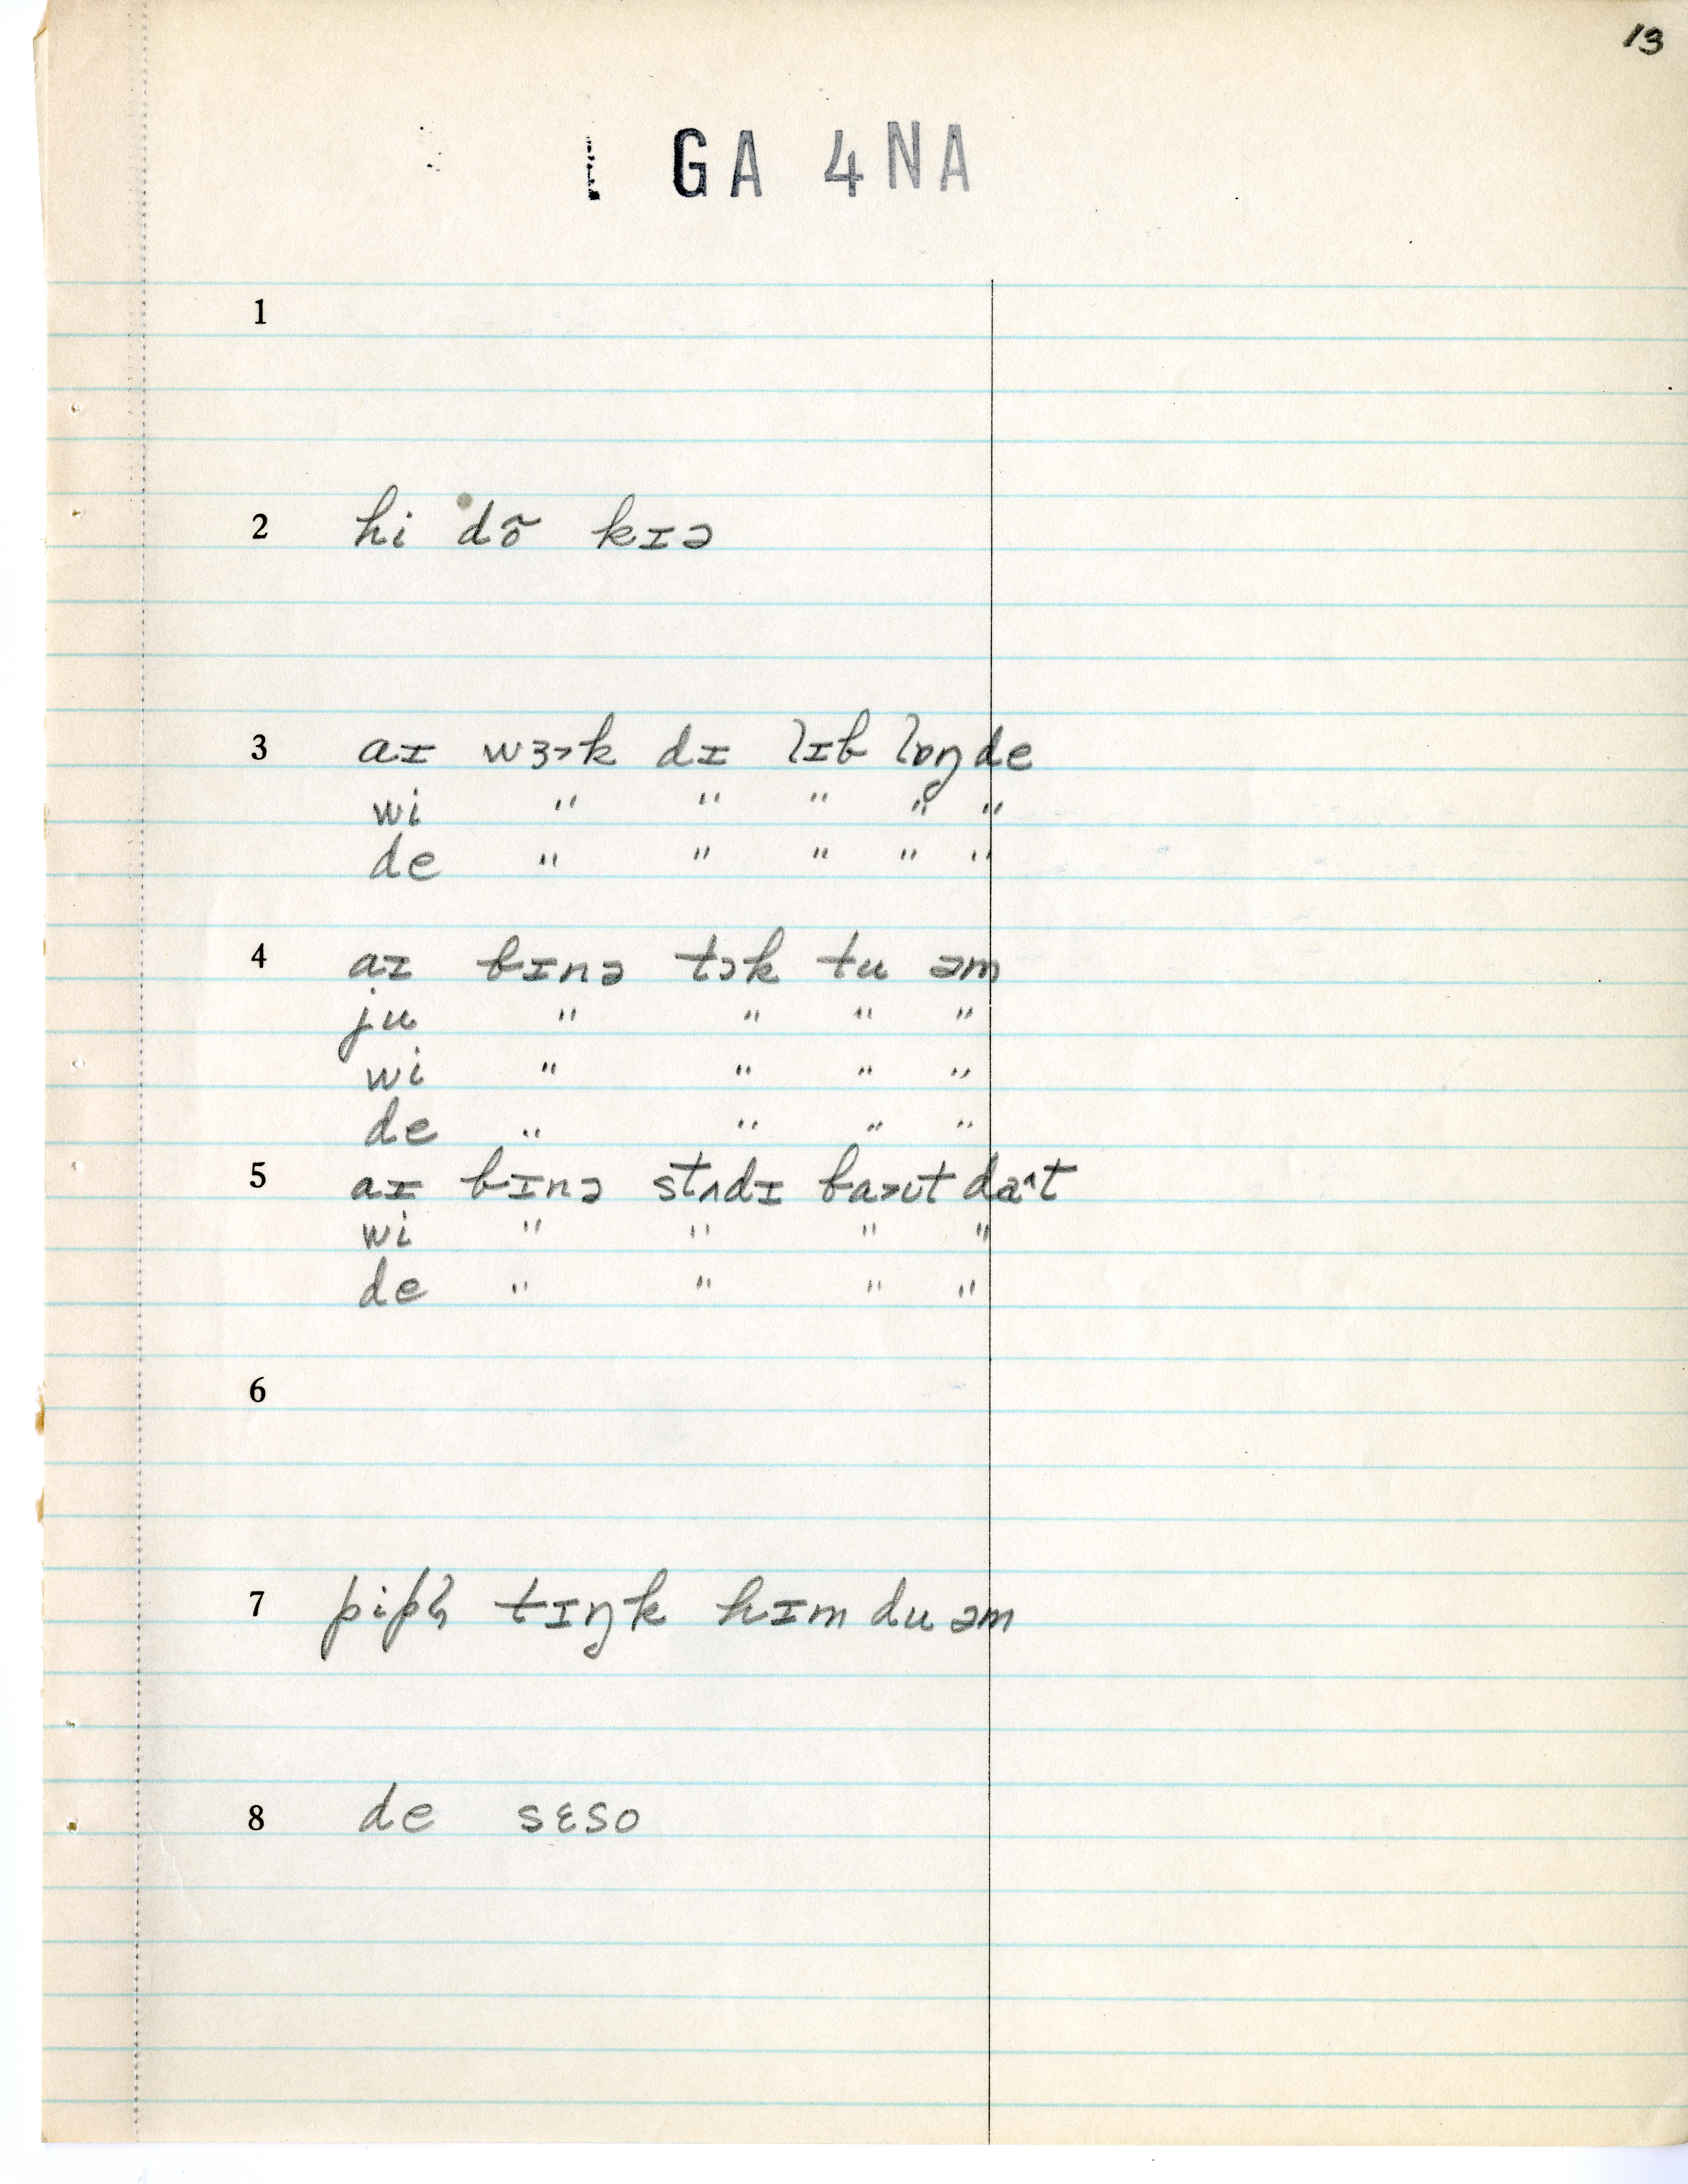 13
GA 4NA
1
2 hi dõ kɪə
3 aɪ wɜ˞k dɪ lɪb lɒŋ de
wi " " " " "
de " " " " "
4 aɪ bɪnə tɔk tu əm
ju " " " "
wi " " " "
de " " " "
5 aɪ bɪnə stʌdɪ baʊt dat
wi " " " "
de " " " "
6
7 pipl̩ tɪŋk hɪm du əm
8 de sɛso